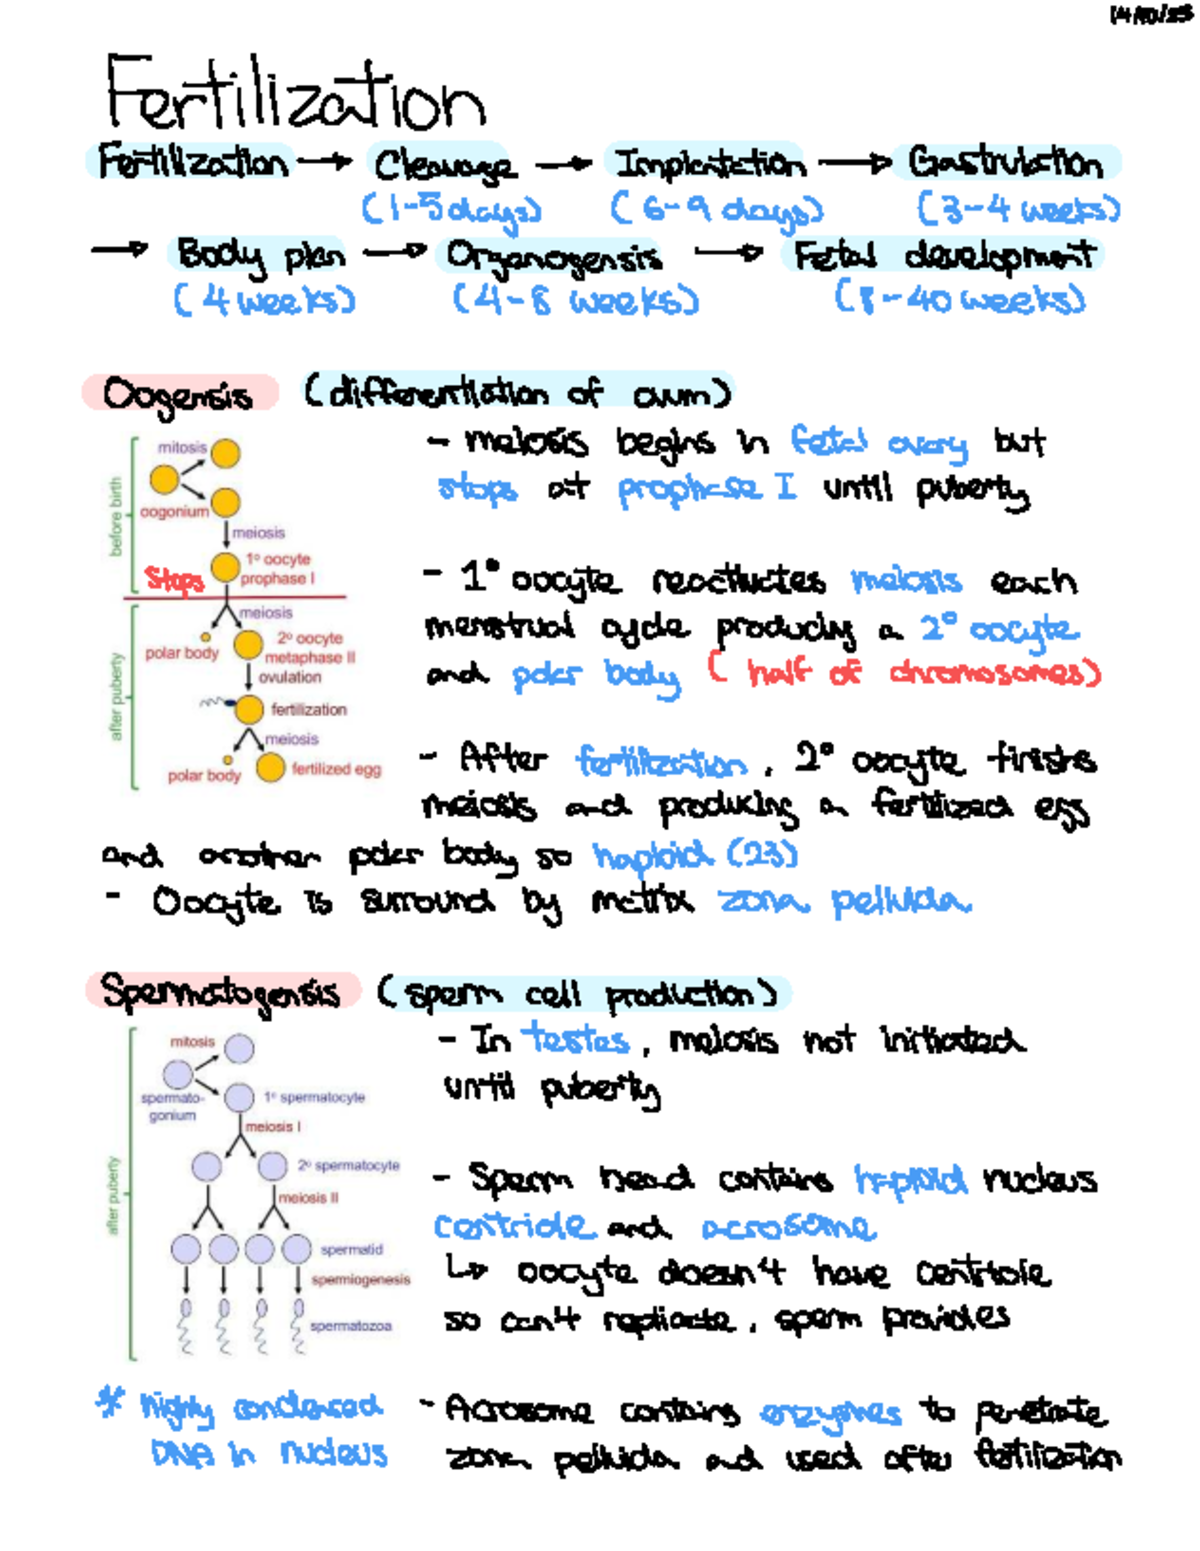 14/10/23
Fertilization
Fertilization → Cleavage → Implantation → Gastrulation
(1-5 days) (6-9 days) (3-4 weeks)
→ Body plan → Organogensis → Fetal development
(4 weeks) (4-8 weeks) (8-40 weeks)
Oogensis (differentiation of ovum)
- meiosis begins in fetal ovary but
stops at prophase I until puberty
- 1° oocyte reactivates meiosis each
menstrual cycle producing a 2° oocyte
and polar body (half of chromosomes)
- After fertilization, 2° oocyte finishs
meiosis and producing a fertilized egg
and another polar body so haploid (23)
- Oocyte is surround by matrix zona pellucida
before birth
mitosis
oogonium
meiosis
1º oocyte
prophase I
Stops
after puberty
meiosis
polar body
2º oocyte
metaphase II
ovulation
fertilization
meiosis
polar body
fertilized egg
Spermatogensis (sperm cell production)
- In testes, meiosis not initiated
until puberty
- Sperm head contains haploid nucleus
centriole and acrosome
↳ oocyte doesn't have centriole
so can't replicate, sperm provides
- Acrosome contains enzymes to penetrate
zona pellucida and used after fertilization
after puberty
mitosis
spermato-
gonium
1º spermatocyte
meiosis I
2º spermatocyte
meiosis II
spermatid
spermiogenesis
spermatozoa
* highly condenced
DNA in nucleus